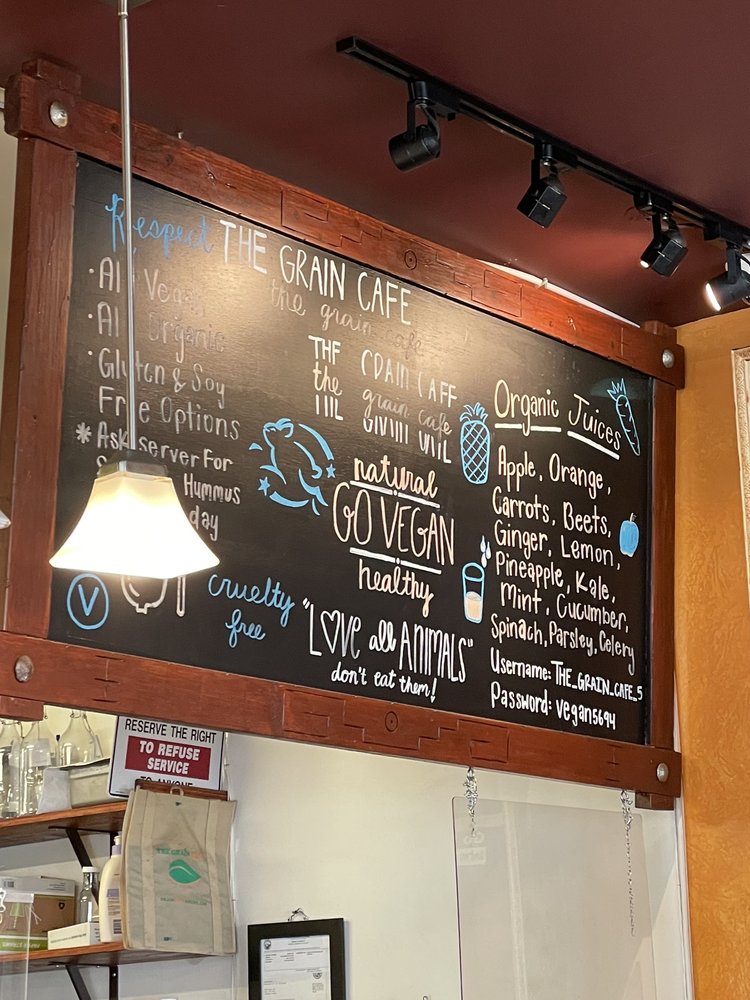 Respect THE GRAIN CAFE
the grain cafe
THE GRAIN CAFE
the grain cafe
· All Vegan
· All Organic
· Gluten & Soy
Free Options
* Ask server for
Hummus
day
V
cruelty
free
natural
GO VEGAN
healthy
"LOVE all ANIMALS"
don't eat them!
Organic Juices
Apple, Orange,
Carrots, Beets,
Ginger, Lemon,
Pineapple, Kale,
Mint, Cucumber,
Spinach, Parsley, Celery
Username: THE_GRAIN_CAFE_5
Password: vegan5694
RESERVE THE RIGHT
TO REFUSE
SERVICE
TO ANYONE
THE GRAIN